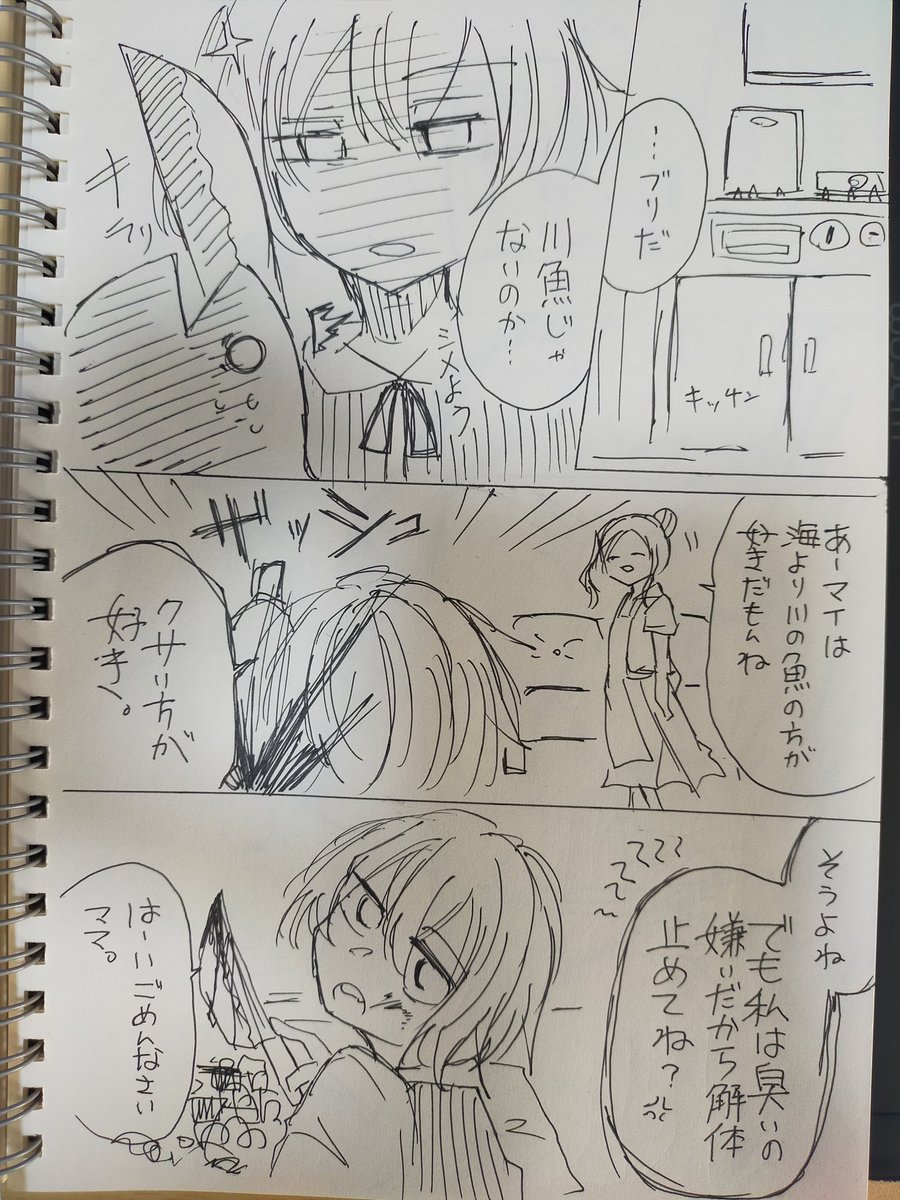 …ブリだ
川魚じゃ
ないのか…
キッチン
キラリ
シメよう
あーマイは
海より川の魚の方が
好きだもんね
ザッシュ
クサい方が
好き。
そうよね
でも私は臭いの
嫌いだから解体
止めてね?
はーいごめんなさい
ママ。